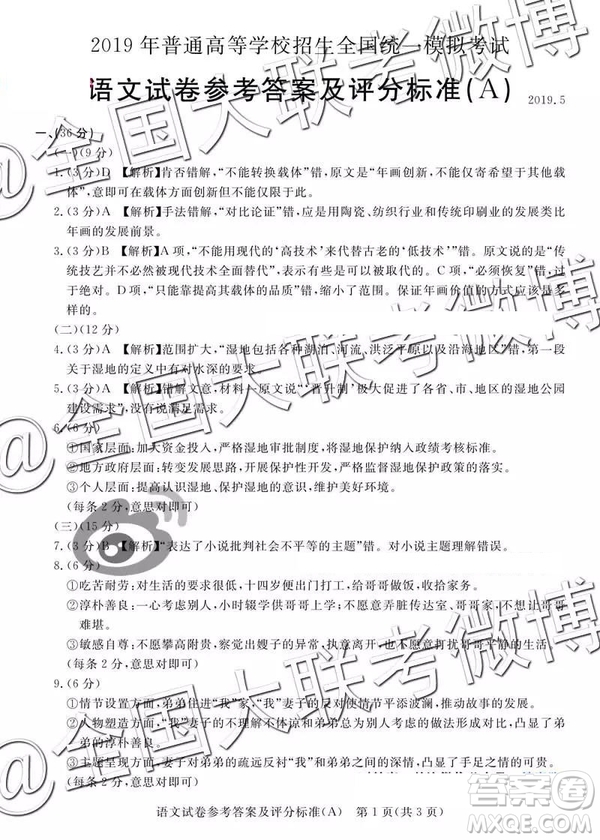 2019年普通高等学校招生全国统一模拟考试
语文试卷参考答案及评分标准(A)
2019.5
一、(36分)
(一)(9分)
1.(3分)D 【解析】肯否错解,“不能转换载体”错,原文是“年画创新,不能仅仅是寄希望于其他载
体”,意即可在载体方面创新但不能仅限于此。
2.(3分)A 【解析】手法错解,“对比论证”错,应是用陶瓷、纺织行业和传统印刷业的发展类比
年画的发展前景。
3.(3分)B 【解析】A项,“不能用现代的‘高技术’来代替古老的‘低技术’”错。原文说的是“传
统技艺并不必然被现代技术全面替代”,表示有些是可以被取代的。C项,“必须恢复”错,过
于绝对。D项,“只要保证”错,缩小了范围。保证年画价值的方式应该是多
样的。
(二)(12分)
4.(3分)A 【解析】范围扩大,“湿地包括各种湖泊、河流、洪泛平原以及沿海地区”错,第一段
关于湿地的定义中有对水深的要求。
5.(3分)A 【解析】错解文意,材料一原文说“‘晋升制’极大促进了各省、市、地区的湿地公园
建设需求”,没有说满足需求。
6.(6分)
①国家层面:加大资金投入,严格湿地审批制度,将湿地保护纳入政绩考核标准。
②地方政府层面:转变发展方式,平衡保护与开发,严格监督湿地保护工作。
③个人层面:提高认识湿地、保护湿地的意识,维护美好环境。
(每条2分,意思对即可)
(三)(15分)
7.(3分)B 【解析】“表达了小说批判社会不平等的主题”错。对小说主题理解错误。
8.(6分)
①吃苦耐劳:对生活的要求很低,十四岁便出门打工,给哥哥做饭,收拾家务。
②淳朴善良:一心考虑别人,小时辍学供哥哥上学;不愿意弄脏传达室、不愿哥哥一家人
难堪。
③敏感自尊:不愿攀高附贵,察觉出嫂子的异常,也不愿意打扰哥哥平静的生活。
(每条2分,意思对即可)
9.(6分)
①情节设置方面,弟弟住进“我”家,“我”妻子的反应使情节平添波澜,推动情节发展。
②人物塑造方面,“我”妻子的冷淡和弟弟总为别人着想的做法形成对比,凸显了弟
弟的淳朴善良。
③主题方面,妻子对弟弟的疏远反衬“我”对弟弟的感恩,凸显了手足之情的可贵。
(每条2分,意思对即可)
语文试卷参考答案及评分标准(A) 第1页(共3页)
@全国大联考微博
@全国大联考微博